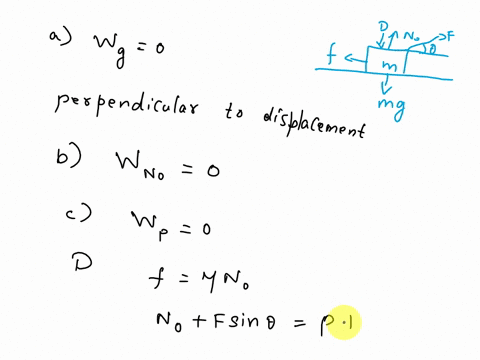 a) Wg = 0
D N₀ F
f θ
m
mg
perpendicular to displacement
b) W_N₀ = 0
c) W_p = 0
D
f = μN₀
N₀ + F sin θ = p.